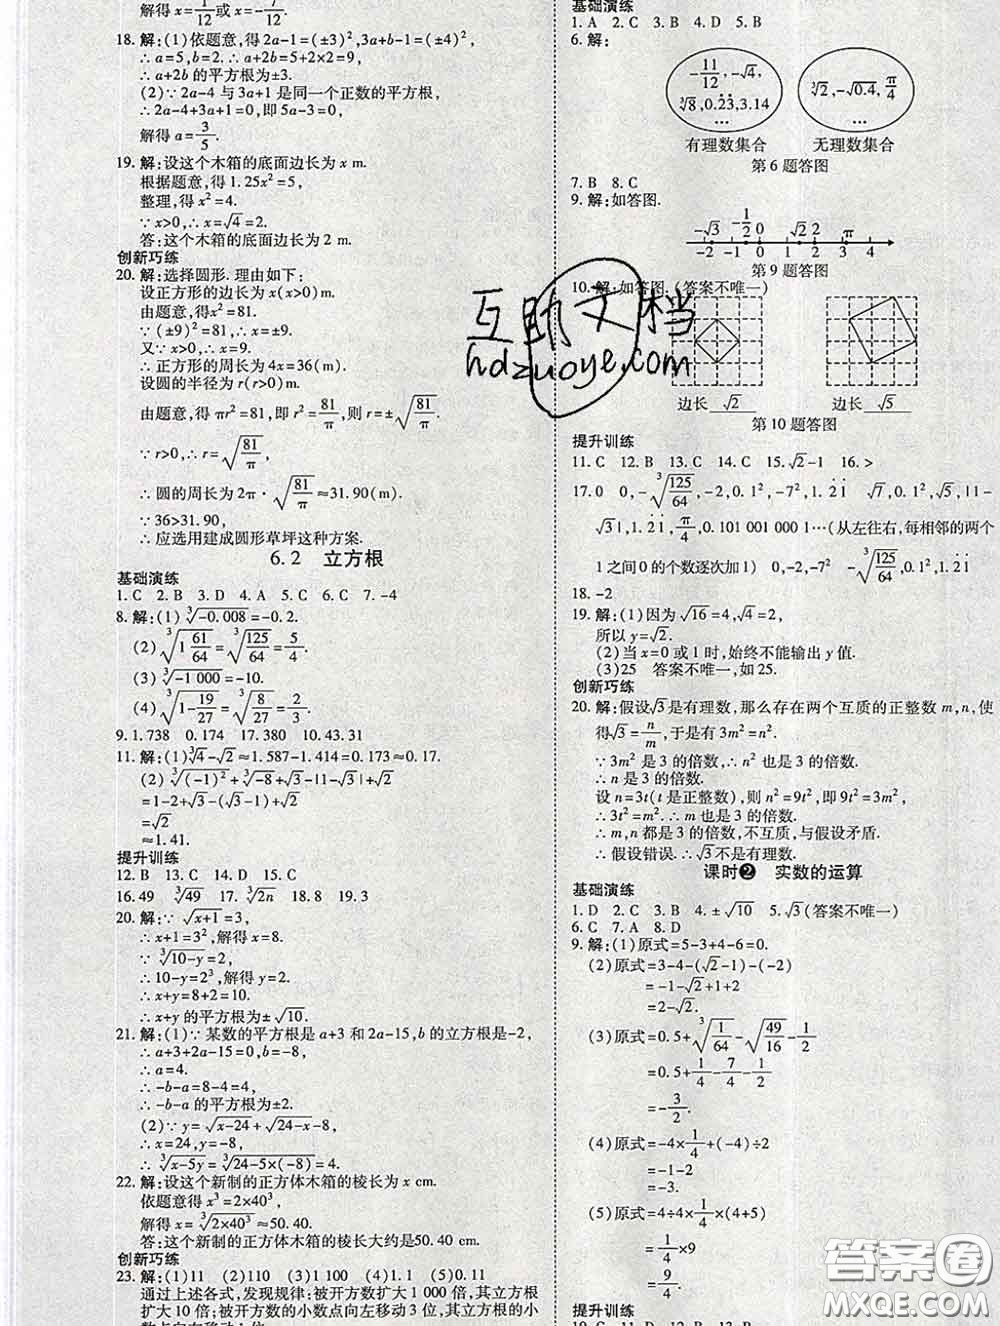 解得x=1/12或x=-7/12.
18. 解:(1)依题意,得2a-1=(±3)²,3a+b-1=(±4)²,
∴a=5,b=2.∴a+2b=5+2×2=9,
∴a+2b的平方根为±3.
(2)∵2a-4与3a+1是同一个正数的平方根,
∴2a-4+3a+1=0,即5a-3=0,
解得a=3/5.
19. 解:设这个木箱的底面边长为x m.
根据题意,得1.25x²=5,
整理,得x²=4.
∵x>0,∴x=√4=2.
答:这个木箱的底面边长为2 m.
创新巧练
20. 解:选择圆形.理由如下:
设正方形的边长为x(x>0)m.
由题意,得x²=81.
∵(±9)²=81,∴x=±9.
又∵x>0,∴x=9.
∴正方形的周长为4x=36(m).
设圆的半径为r(r>0)m.
由题意,得πr²=81,即r²=81/π,则r=±√(81/π).
∵r>0,∴r=√(81/π).
∴圆的周长为2π·√(81/π)≈31.90(m).
∵36>31.90,
∴应选用建成圆形草坪这种方案.
6.2 立方根
基础演练
1.C 2.B 3.D 4.A 5.C 6.C 7.-4
8. 解:(1)∛(-0.008)=-0.2.
(2)∛(1 61/64)=∛(125/64)=5/4.
(3)∛(-1 000)=-10.
(4)∛(1-19/27)=∛(8/27)=2/3.
9.1.738 0.174 17.380 10.43.31
11. 解:(1)∛4-√2≈1.587-1.414=0.173≈0.17.
(2)∛((-1)²)+∛(-8)+√3-|1-√3|+√2
=1-2+√3-(√3-1)+√2
=√2
≈1.41.
提升训练
12.B 13.C 14.D 15.C
16.49 ∛49 17.∛2n 18.8 19.3
20. 解:∵√(x+1)=3,
∴x+1=3²,解得x=8.
∵∛(10-y)=2,
∴10-y=2³,解得y=2.
∴x+y=8+2=10.
∴x+y的平方根为±√10.
21. 解:(1)∵某数的平方根是a+3和2a-15,b的立方根是-2,
∴a+3+2a-15=0,b=-8,
∴a=4.
∴-b-a=8-4=4,
∴-b-a的平方根为±2.
(2)∵y=√(x-24)+√(24-x)-8,
∴x=24,y=-8,
∴∛(x-5y)=∛(24-5×(-8))=4.
22. 解:设这个新制的正方体木箱的棱长为x cm.
依题意得x³=2×40³,
解得x=∛(2×40³)≈50.40.
答:这个新制的正方体木箱的棱长大约是50.40 cm.
创新巧练
23. 解:(1)11 (2)110 (3)1 100 (4)1.1 (5)0.11
通过上述各式,发现规律:被开方数扩大1 000倍,其立方根
扩大10倍;被开方数的小数点向左移动3位,其立方根的小
数点向左移动1位.
基础演练
1.A 2.C 3.B 4.D 5.B
6. 解:
-11/12,-√4,
∛8,0.2̇3̇,3.14
…
∛2,-√0.4,π/4
…
有理数集合 无理数集合
第6题答图
7.B 8.C
9. 解:如答图.
-√3 -1/2 0 √2 2 π
-2 -1 0 1 2 3 4
第9题答图
10. 解:如答图.(答案不唯一)
边长 √2 边长 √5
第10题答图
提升训练
11.C 12.B 13.C 14.C 15.√2-1 16.>
17.0 0,-∛(125/64),-2,0.1²,-7²,1.2̇1̇ √7,0.1²,√5,|1-
√3|,1.2̇1̇,π/4,0.101 001 000 1…(从左往右,每相邻的两个
1之间0的个数逐次加1) 0,-2,-7² -∛(125/64),0.1²,1.2̇1̇
18.-2
19. 解:(1)因为√16=4,√4=2,
所以y=√2.
(2)当x=0或1时,始终不能输出y值.
(3)25 答案不唯一,如25.
创新巧练
20. 解:假设√3是有理数,那么存在两个互质的正整数m,n,使
得√3=n/m,于是有3m²=n².
∵3m²是3的倍数,∴n²也是3的倍数.
∴n是3的倍数.
设n=3t(t是正整数),则n²=9t²,即9t²=3m²,
∴3t²=m².∴m也是3的倍数.
∴m,n都是3的倍数,不互质,与假设矛盾.
∴假设错误.∴√3不是有理数.
课时❷ 实数的运算
基础演练
1.D 2.C 3.B 4.±√10 5.√3(答案不唯一)
6.C 7.A 8.D
9. 解:(1)原式=5-3+4-6=0.
(2)原式=3-4-(√2-1)-(-2)
=-1-√2+1+2
=2-√2.
(3)原式=0.5+∛(1/64)-√(49/16)-1/2
=0.5+1/4-7/4-1/2
=-3/2.
(4)原式=-4×1/4+(-4)÷2
=-1-2
=-3.
(5)原式=4÷4×1/4×(4+5)
=1/4×9
=9/4.
提升训练
互助文档
hdzuoye.com
答案圈
MXQE.COM